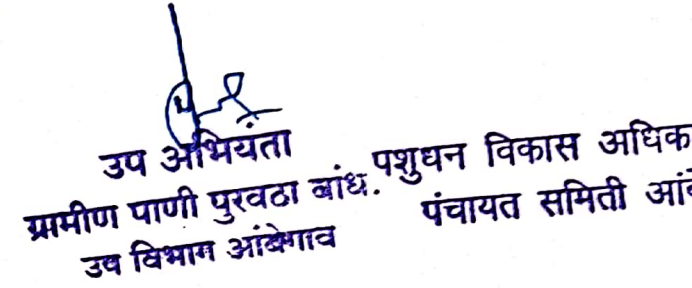 उप अभियंता
ग्रामीण पाणी पुरवठा बांध.
उप विभाग आंबेगाव
पशुधन विकास अधिक
पंचायत समिती